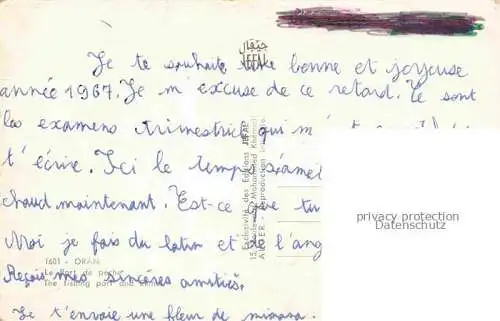 Je te souhaite une bonne et joyeuse
année 1967. Je m'excuse de ce retard. Ce sont
les examens trimestriels qui m'
t'écrire. Ici le temps
chaud maintenant. Est-ce que tu
Moi je fais du latin et de l'ang
Reçois mes sincères amitiés.
Je t'envoie une fleur de mimosa.
جيفال
JEFAL
1601 - ORAN
Le Port de pêche
The fishing port and
Exclusivité des Editions JEFAL
15, Mohammed
ALGER - Reproduction
privacy protection
Datenschutz